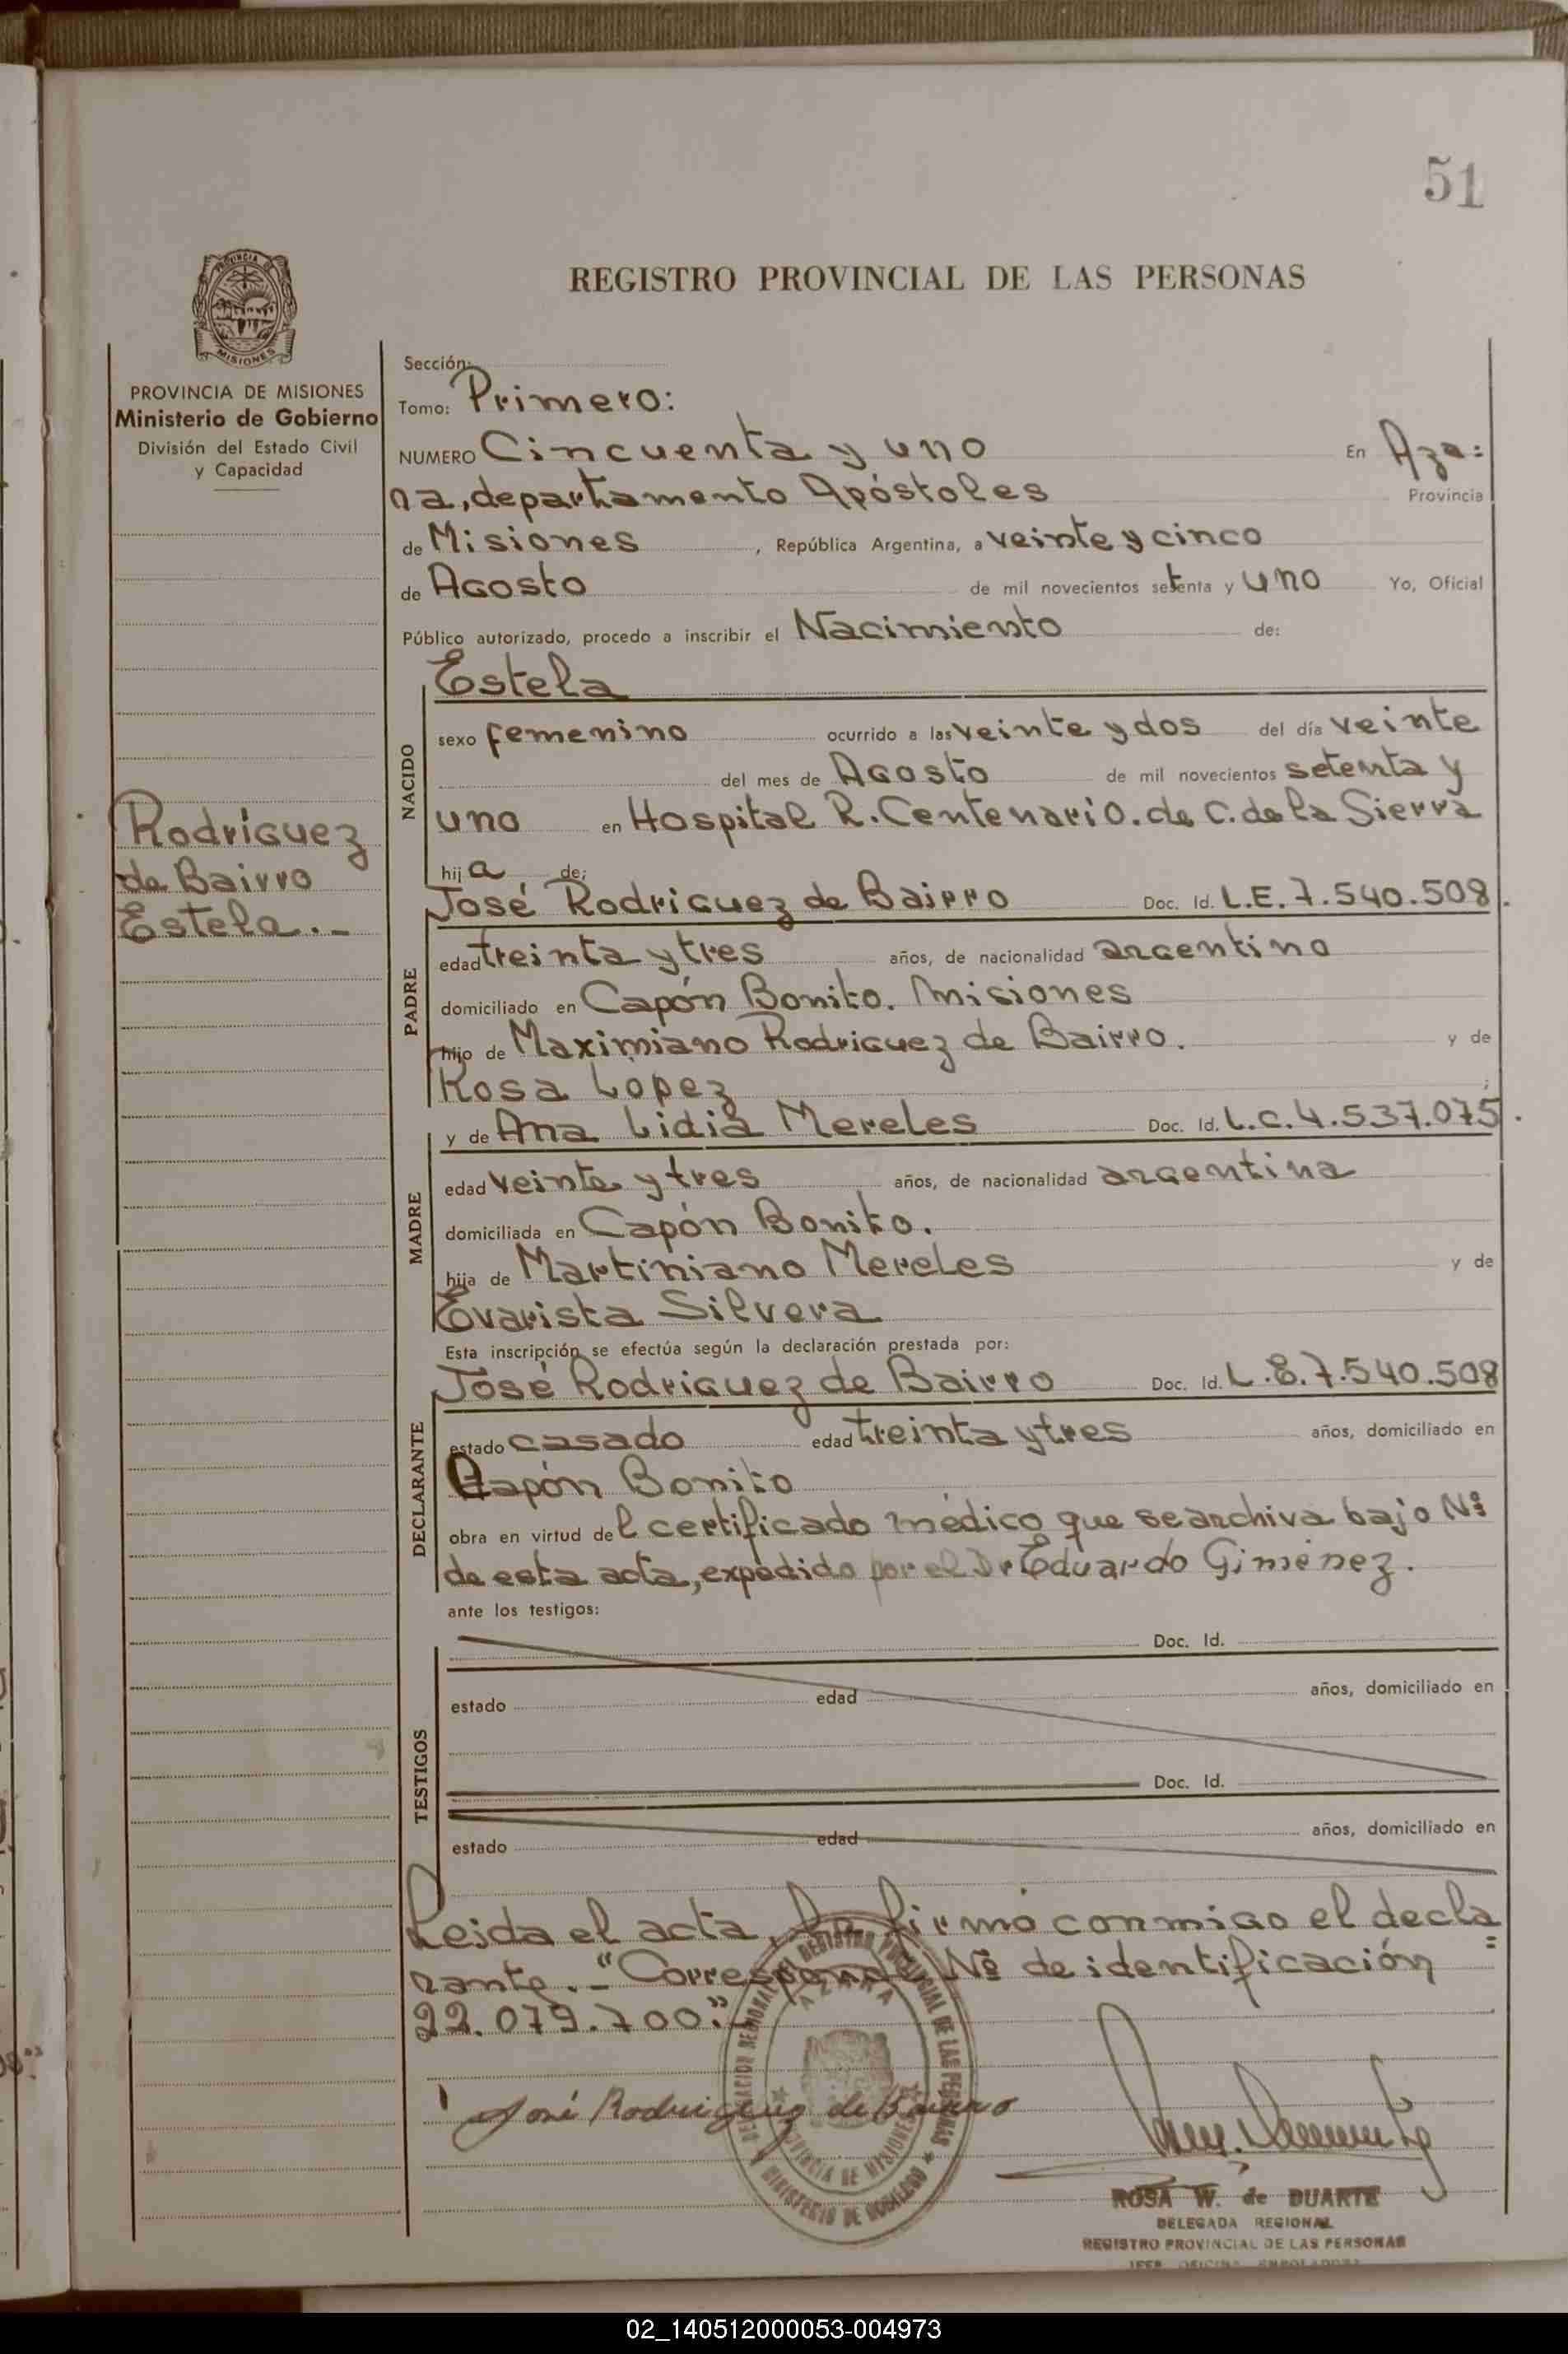 51
PROVINCIA DE
MISIONES
REGISTRO PROVINCIAL DE LAS PERSONAS
PROVINCIA DE MISIONES
Ministerio de Gobierno
División del Estado Civil
y Capacidad
Rodríguez
de Bairro
Estela._
Sección:
Tomo: Primero:
NUMERO Cincuenta y uno En Aza:
ra, departamento Apóstoles Provincia
de Misiones, República Argentina, a veinte y cinco
de Agosto de mil novecientos setenta y uno Yo, Oficial
Público autorizado, procedo a inscribir el Nacimiento de:
NACIDO
Estela
sexo femenino ocurrido a las veinte y dos del día veinte
del mes de Agosto de mil novecientos setenta y
uno en Hospital R. Centenario. de C. de la Sierra
hija de:
PADRE
José Rodriguez de Bairro Doc. Id. L.E. 7.540.508.
edad treinta y tres años, de nacionalidad argentino
domiciliado en Capón Bonito. Misiones
hijo de Maximiano Rodriguez de Bairro. y de
Rosa Lopez ;
MADRE
y de Ana Lidia Mereles Doc. Id. L.C. 4.537.075.
edad veinte y tres años, de nacionalidad argentina
domiciliada en Capón Bonito.
hija de Martiniano Mereles y de
Evarista Silvera
Esta inscripción se efectúa según la declaración prestada por:
DECLARANTE
José Rodriguez de Bairro Doc. Id. L.E. 7.540.508
estado casado edad treinta y tres años, domiciliado en
Capón Bonito
obra en virtud del certificado médico que se archiva bajo Nº
de esta acta, expedido por el Dr Eduardo Giménez.
ante los testigos:
TESTIGOS
Doc. Id.
estado edad años, domiciliado en
Doc. Id.
estado edad años, domiciliado en
Leida el acta, la firmó conmigo el decla
rante._ "Corresponde Nº de identificación =
22.079.700"._
DELEGACION REGIONAL DEL REGISTRO PROVINCIAL DE LAS PERSONAS
AZARA
PROVINCIA DE MISIONES
MINISTERIO DE GOBIERNO
José Rodriguez de Bairro
ROSA W. de DUARTE
DELEGADA REGIONAL
REGISTRO PROVINCIAL DE LAS PERSONAS
JEFE OFICINA ENROLADORA
02_140512000053-004973